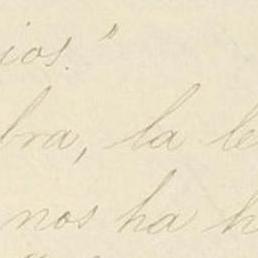 ios."
bra, la le
nos ha h